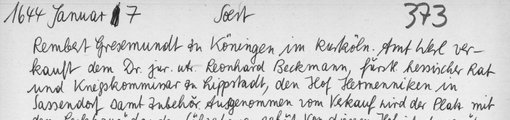 1644 Januar 7 Soest 373
Rembert Gresemundt zu Köningen im kurköln. Amt Werl ver-
kauft dem Dr. jur. utr. Leonhard Beckmann, fürstl. hessischer Rat
und Kriegskommissar zu Lippstadt, den Hof Hernenniken in
Sassendorf samt Zubehör. Ausgenommen vom Verkauf wird der Platz mit